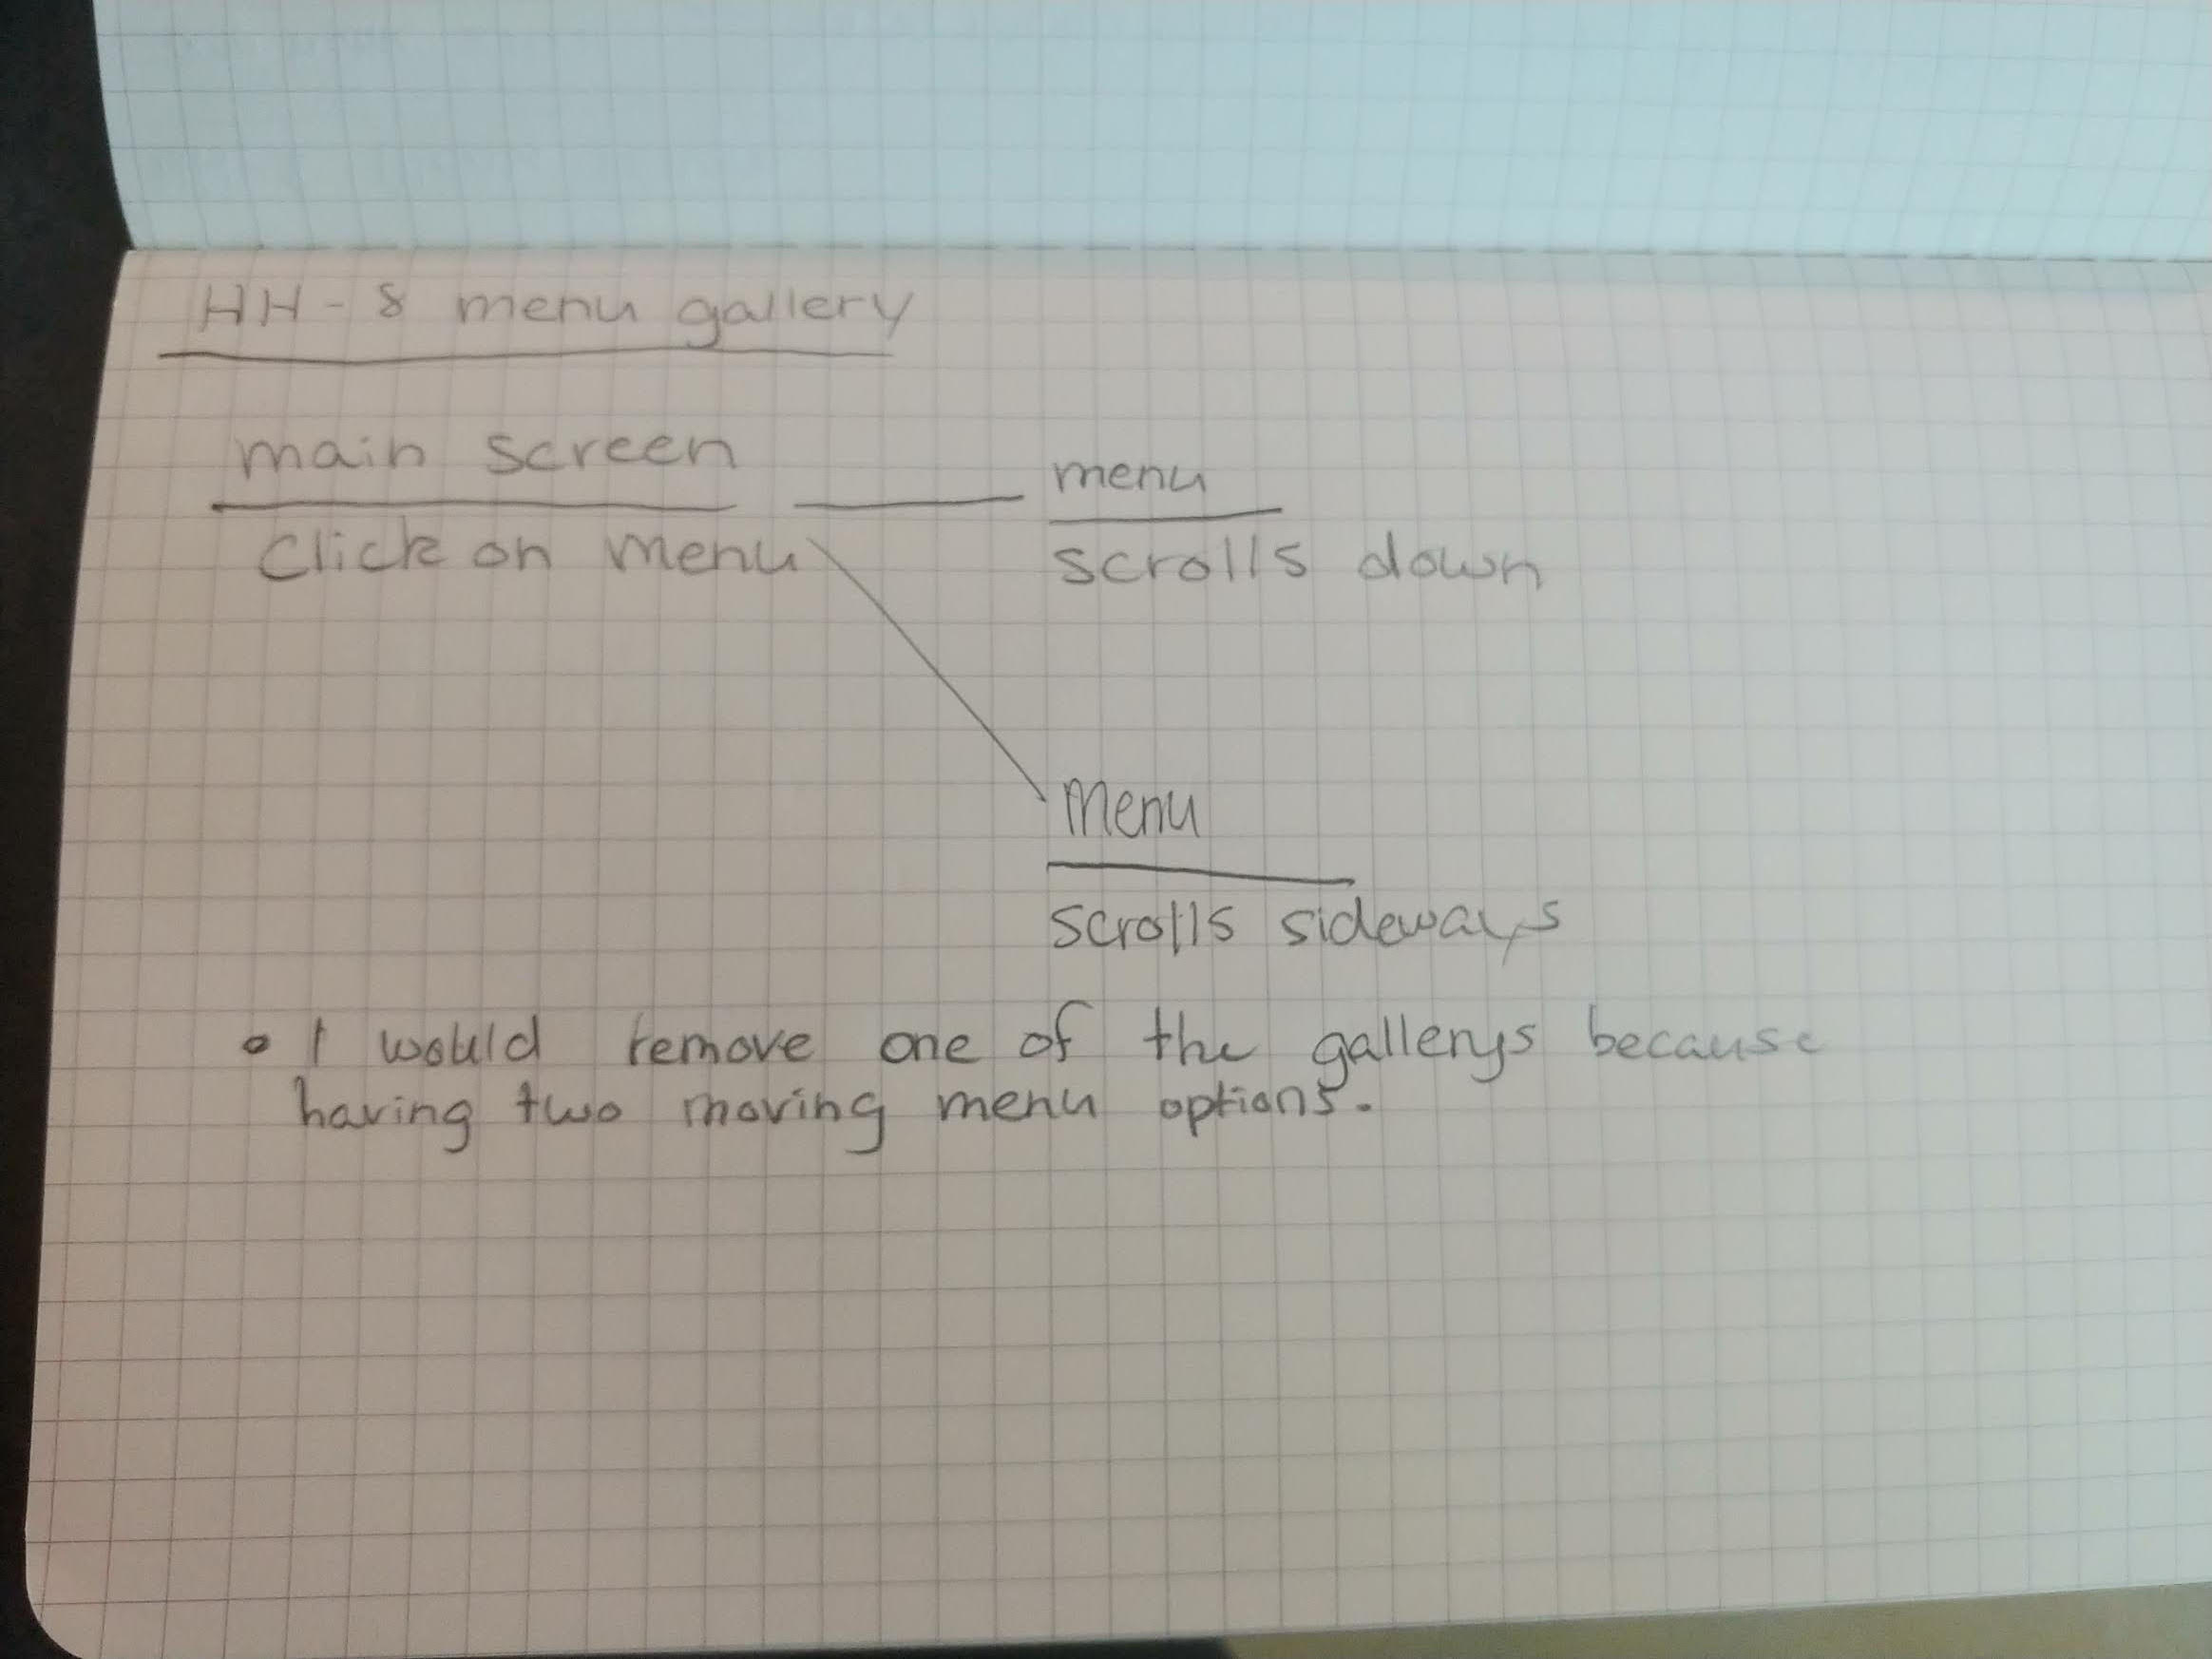 HH-8 menu gallery
main screen
menu
Click on menu
scrolls down
Menu
scrolls sideways
• I would remove one of the gallerys because
having two moving menu options.